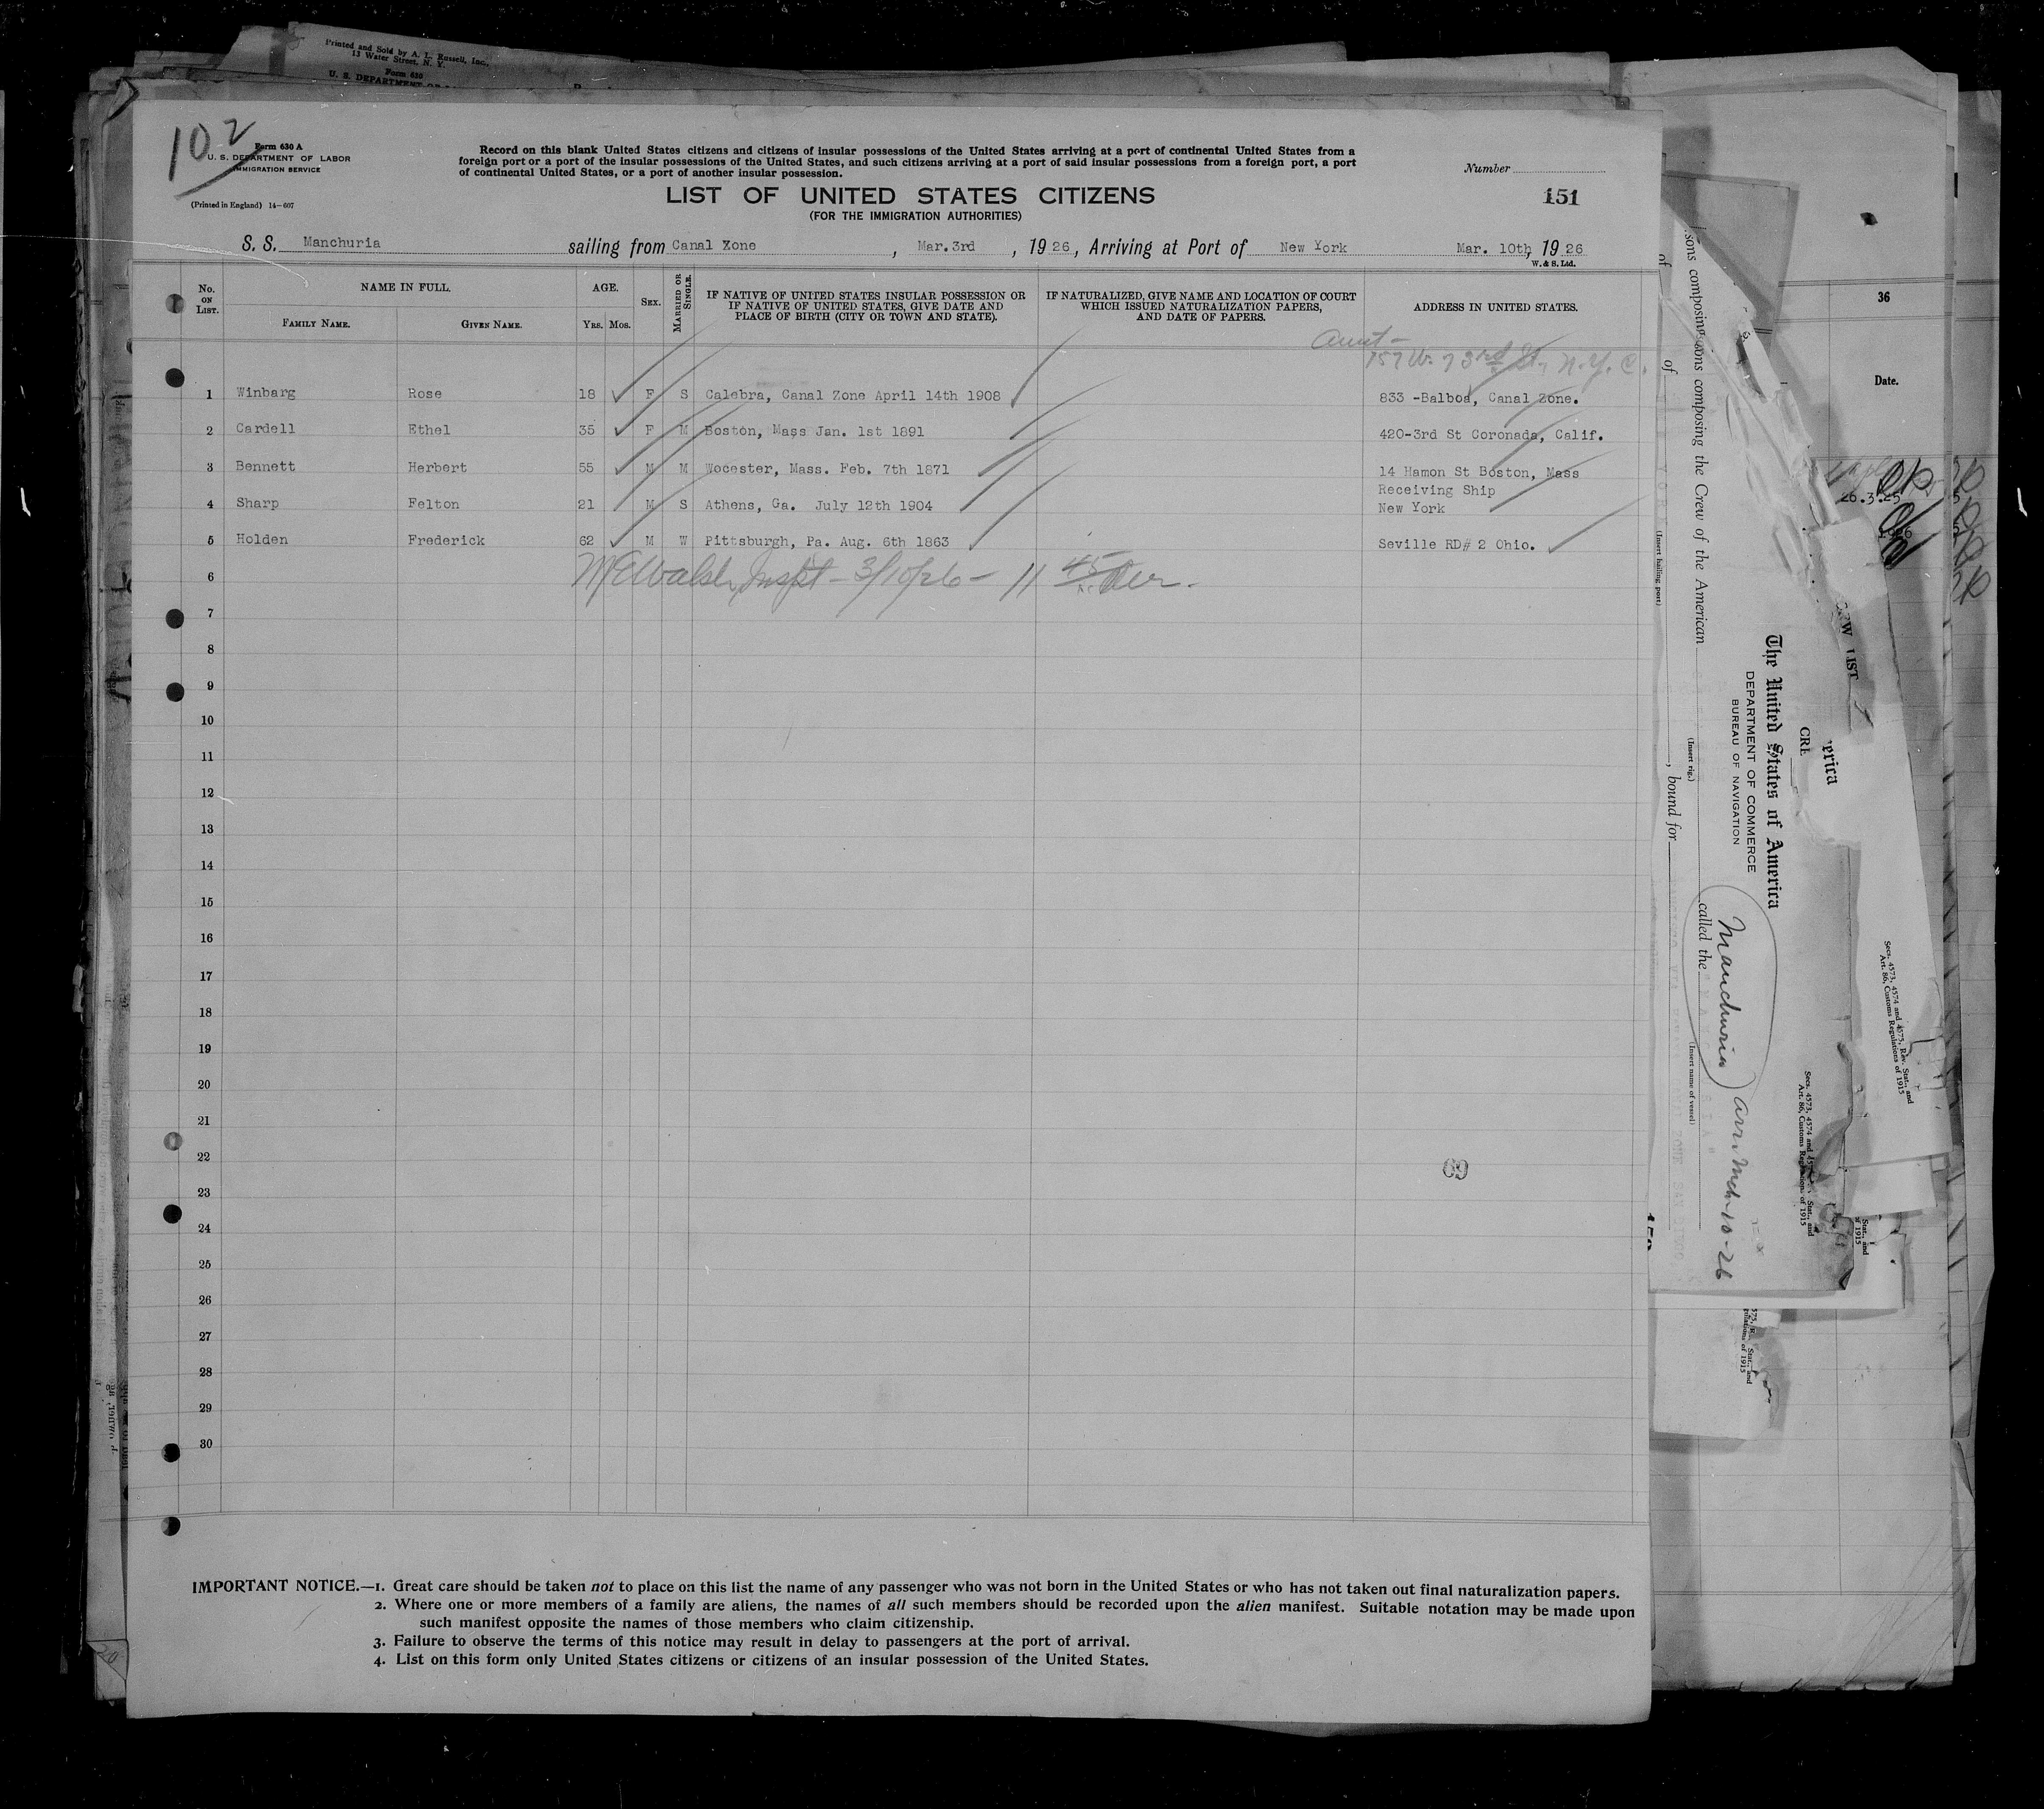 Printed and Sold by A. L. Russell, Inc.,
13 Water Street, N. Y.
Form 630
102
Form 630 A
U. S. DEPARTMENT OF LABOR
IMMIGRATION SERVICE
(Printed in England) 14—607
Record on this blank United States citizens and citizens of insular possessions of the United States arriving at a port of continental United States from a
foreign port or a port of the insular possessions of the United States, and such citizens arriving at a port of said insular possessions from a foreign port, a port
of continental United States, or a port of another insular possession.
Number
LIST OF UNITED STATES CITIZENS
151
(FOR THE IMMIGRATION AUTHORITIES)
S. S. Manchuria sailing from Canal Zone, Mar.3rd, 1926, Arriving at Port of New York Mar. 10th, 1926
W. & S. Ltd.
No. ON LIST. NAME IN FULL. AGE. SEX. MARRIED OR SINGLE. IF NATIVE OF UNITED STATES INSULAR POSSESSION OR IF NATIVE OF UNITED STATES, GIVE DATE AND PLACE OF BIRTH (CITY OR TOWN AND STATE). IF NATURALIZED, GIVE NAME AND LOCATION OF COURT WHICH ISSUED NATURALIZATION PAPERS, AND DATE OF PAPERS. ADDRESS IN UNITED STATES.
FAMILY NAME. GIVEN NAME. YRS. MOS.
Aunt—
157 W. 73rd St., N.Y.C.
1 Winbarg Rose 18 F S Calebra, Canal Zone April 14th 1908 833 -Balboa, Canal Zone.
2 Cardell Ethel 35 F M Boston, Mass Jan. 1st 1891 420-3rd St Coronada, Calif.
3 Bennett Herbert 55 M M Wocester, Mass. Feb. 7th 1871 14 Hamon St Boston, Mass
Receiving Ship
4 Sharp Felton 21 M S Athens, Ga. July 12th 1904 New York
5 Holden Frederick 62 M W Pittsburgh, Pa. Aug. 6th 1863 Seville RD# 2 Ohio.
6 McWalsh, Inspt — 3/10/26 — 11 45
7
8
9
10
11
12
13
14
15
16
17
18
19
20
21
22
69
23
24
25
26
27
28
29
30
IMPORTANT NOTICE.—1. Great care should be taken not to place on this list the name of any passenger who was not born in the United States or who has not taken out final naturalization papers.
2. Where one or more members of a family are aliens, the names of all such members should be recorded upon the alien manifest. Suitable notation may be made upon
such manifest opposite the names of those members who claim citizenship.
3. Failure to observe the terms of this notice may result in delay to passengers at the port of arrival.
4. List on this form only United States citizens or citizens of an insular possession of the United States.
36
Date.
26.3.25
sons composing the Crew of the American
called the
(Insert rig.)
(Insert name of vessel)
(Insert hailing port)
, bound for
The United States of America
DEPARTMENT OF COMMERCE
BUREAU OF NAVIGATION
Manchuria arr. Mch-10-26
Secs. 4573, 4574 and 4575, Rev. Stat., and
Art. 86, Customs Regulations of 1915